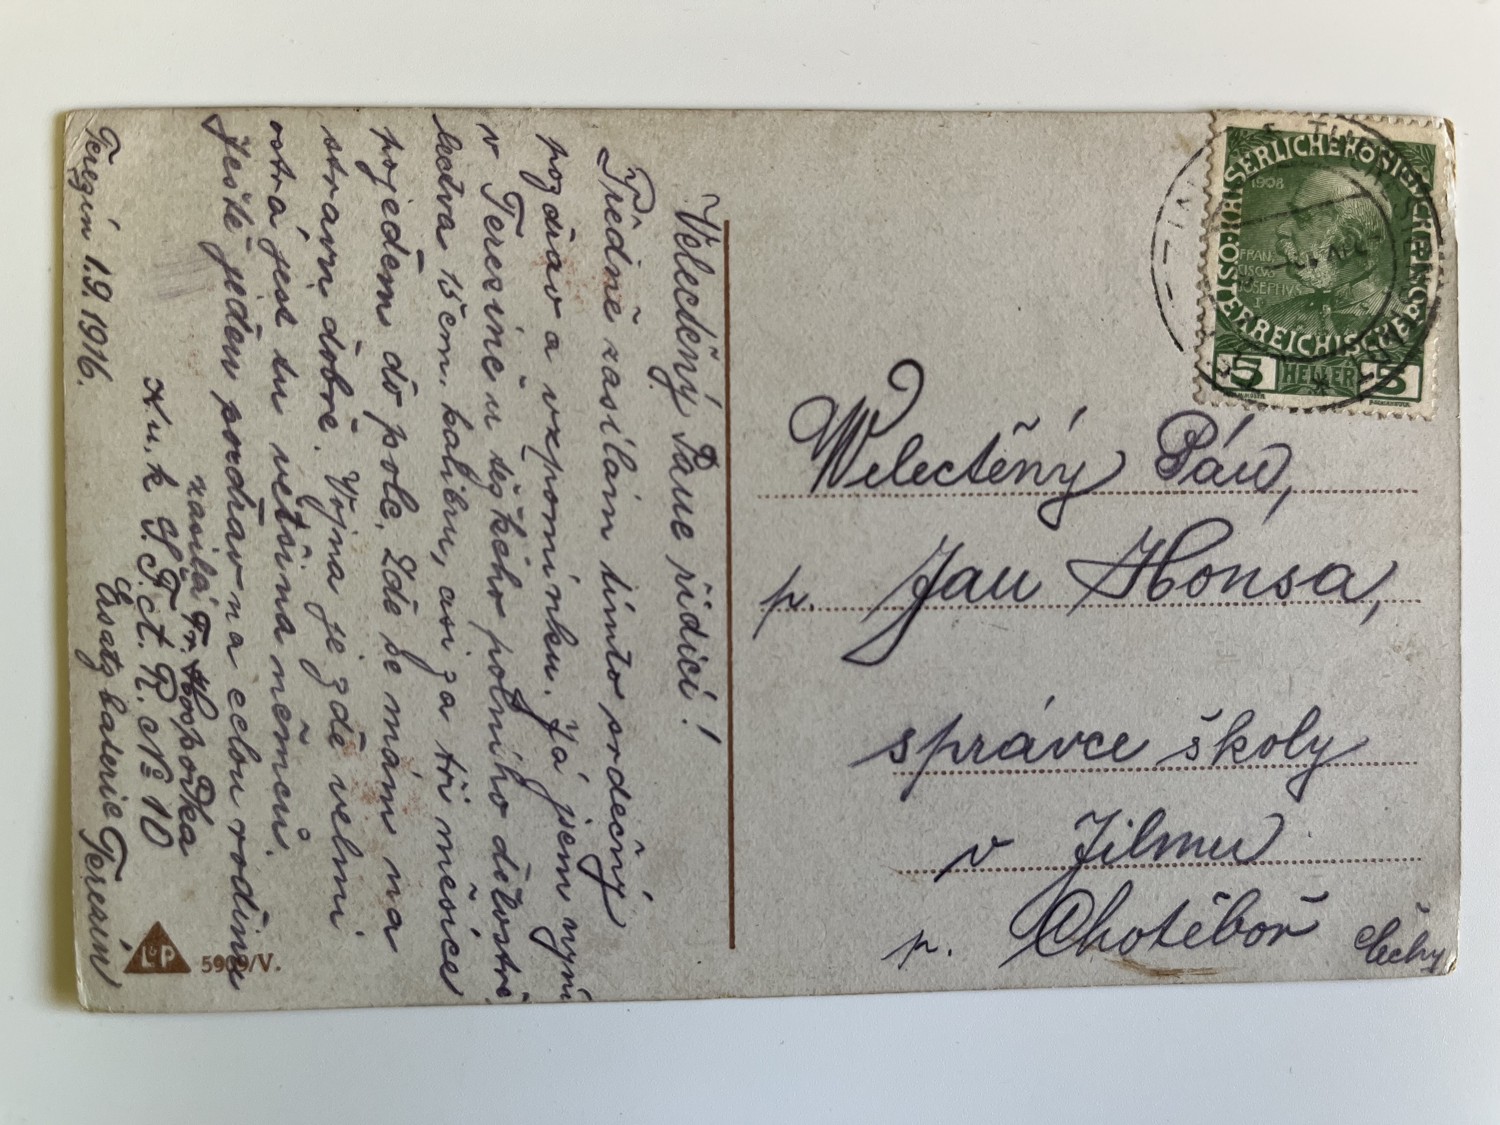 Velectěný Pane řídící!
Předně zasílám tímto srdečný
pozdrav a vzpomínku. Já jsem nyní
v Terezíně u těžkého polního dělostře
lectva 15 cm. kalibru, asi za tři měsíce
pojedem do pole. Zde se mám na
stravu dobře. Vojna je zde velmi
ostrá jest tu většina němců.
Ještě jeden pozdrav na celou rodinu
zasílá Fr. Hospodka
K u. k S. F. ct. R. № 10
Ersatz baterie Terezín
Terezín 1.9.1916.
L&P 5909/V.
KAISERLICHE KÖNIGLICHE ÖSTERREICHISCHE POST
1908
FRAN
CISCVS
IOSEPHVS
I.
5 HELLER 5
Welectěný Pán,
p. Jan Honsa,
správce školy
v Jilmu
p. Chotěboř Čechy